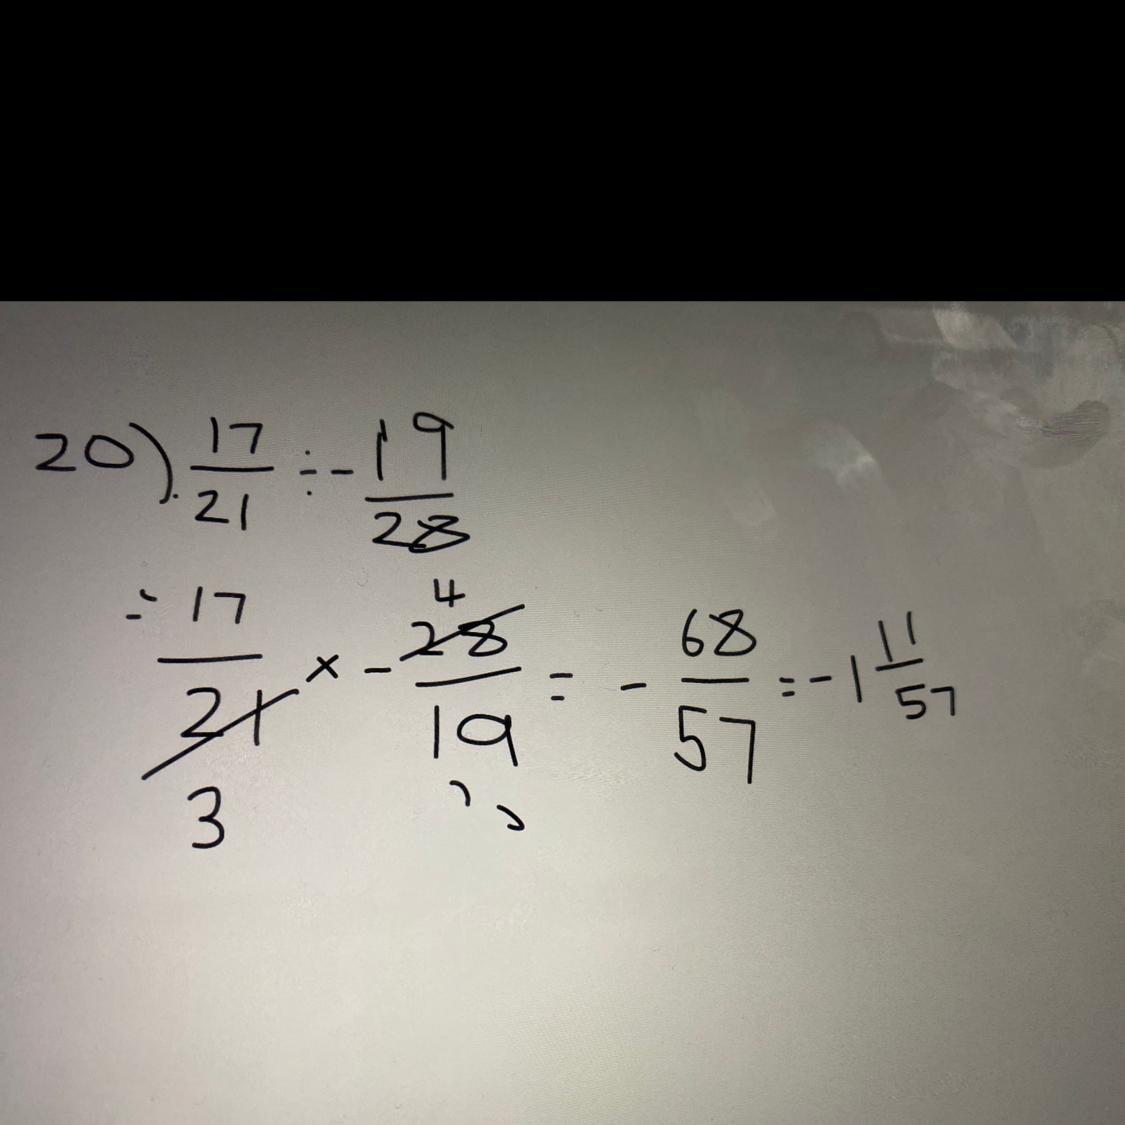 20). 17/21 ÷ - 19/28
= 17/21 3 × - 28/19 4 = - 68/57 = - 1 11/57